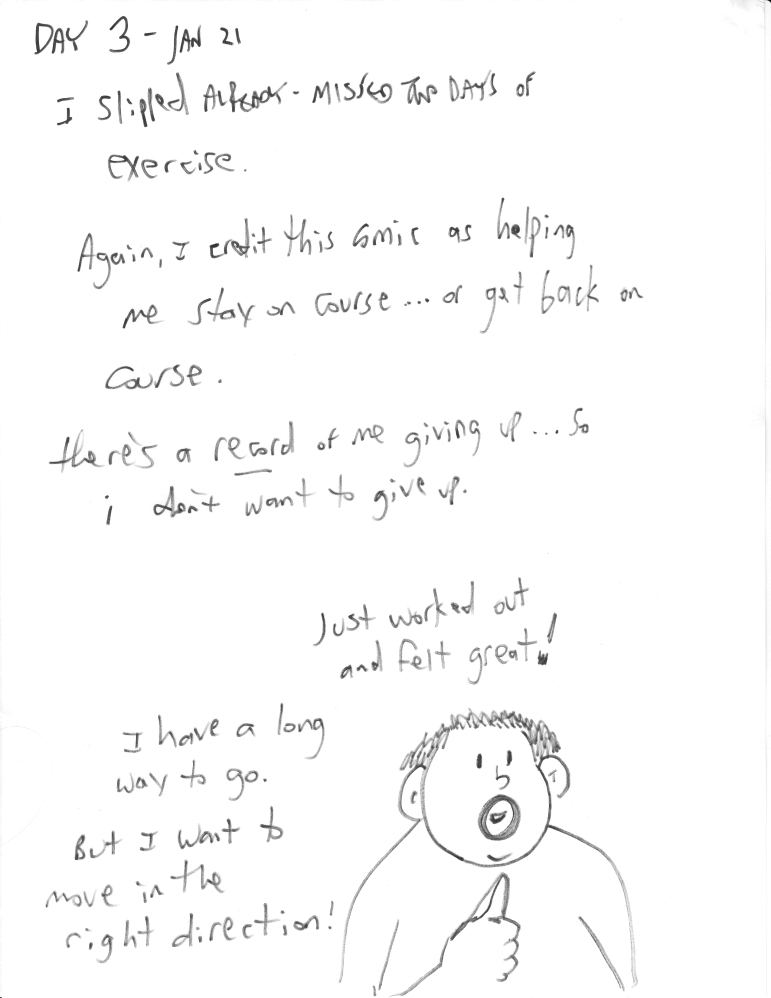 DAY 3 - JAN 21
I slipped Already - MISSED Two DAYS of
exercise.
Again, I credit this comic as helping
me stay on course... or get back on
course.
there's a record of me giving up... so
i don't want to give up.
Just worked out
and felt great!
I have a long
way to go.
But I want to
move in the
right direction!